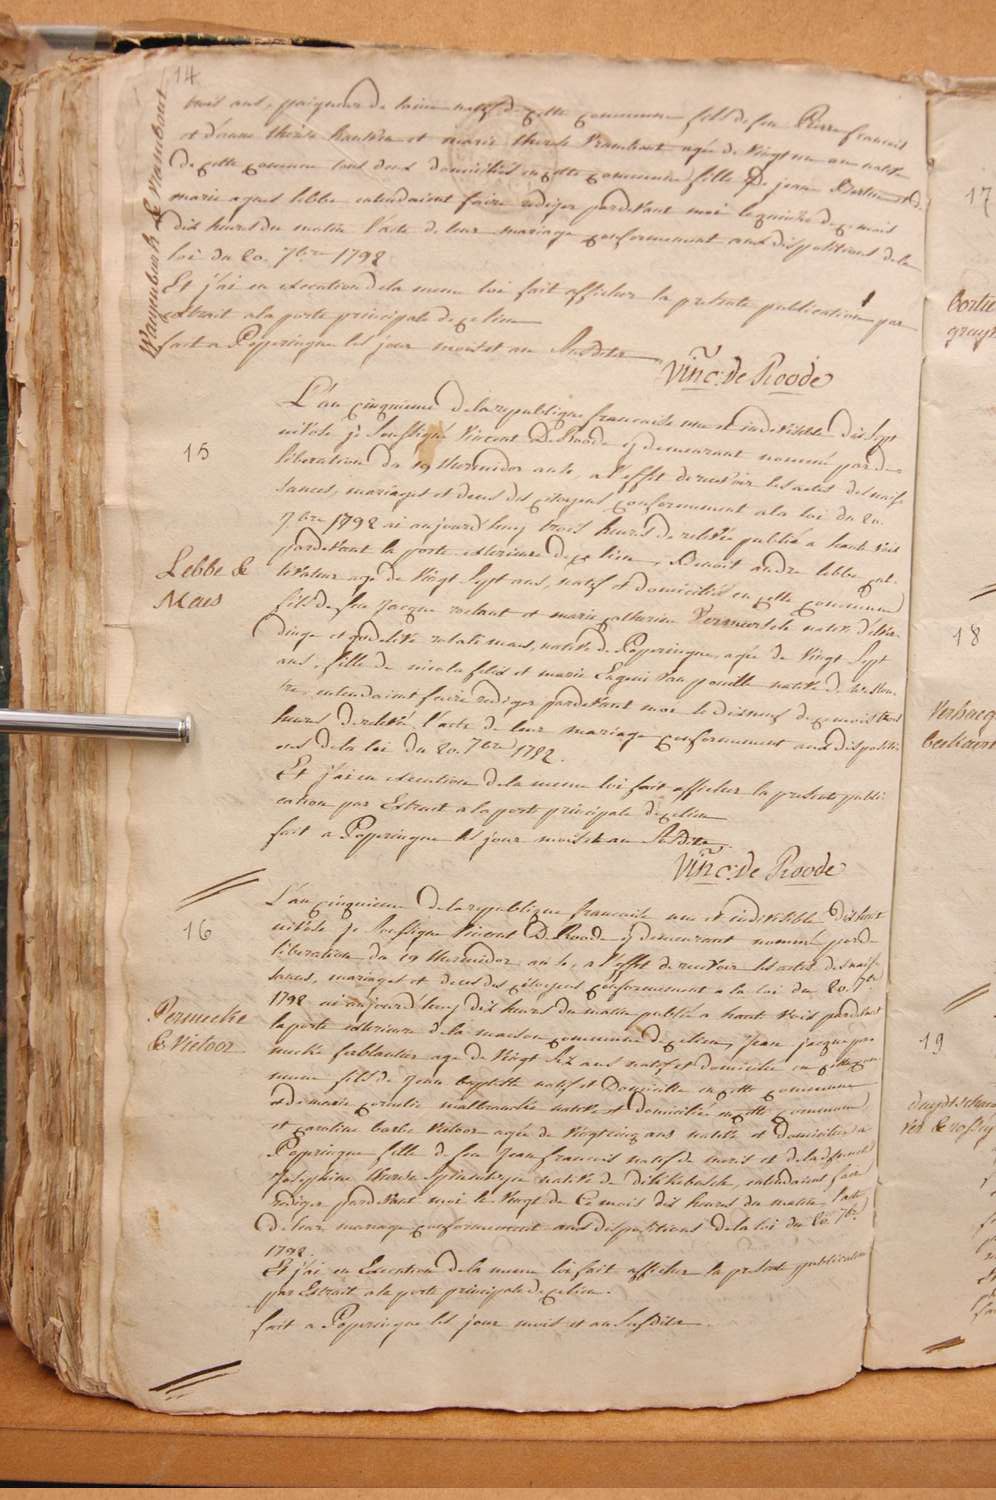 14
Waynuburh & Vrambout
trois ans, paigneur de laine natif de cette commune fils de feu Pierre francois
et d'anne therese et marie therese Vrambout agée de vingt un ans native
de cette commune tous deux domiciliés en cette commune fille de jean Bertin et de
marie agnes lebbe entendaient faire rediger pardevant moi le de ce mois
dix heures du matin l'acte de leur mariage conformement aux dispositions de la
loi du 20. 7bre 1792
Et j'ai en execution de la meme loi fait afficher la presente publication par
extrait a la porte principale de ce lieu
fait a Poperingue les jour mois et an susdits
Vinc: de Roode
15
Lebbe &
Maes
L'an cinquieme de la republique francaise une et indivisible dix sept
nivose je soussigné Vincent De Roode y demeurant nommé par de
liberation du 19 thermidor an 4e, a l'effet de recevoir les actes de nais
sances, mariages et deces des citoyens conformement a la loi du 20.
7bre 1792 ai aujourd'huy trois heures de relevée publié a haute voix
pardevant la porte exterieure de ce lieu, Benoit andre lebbe cul-
tivateur age de vingt sept ans, natif et domicilié en cette commune
fils de feu Jacque roelant et marie catherine Vermeersch native d'elver
dinge et godelive maes, native de Poperingue, agée de vingt sept
ans, fille de nicolas felix et marie Eugeni Van pouille native de Westou
tre, entendaient faire rediger pardevant moi le dixneuf de ce mois trois
heures de relevée l'acte de leur mariage conformement aux dispositi
ons de la loi du 20. 7bre 1792.
Et j'ai en execution de la meme loi fait afficher la presente publi
cation par Extrait a la porte principale de ce lieu
fait a Poperingue les jour mois et an susdits
Vinc: de Roode
16
Permecke
& Vieloor
L'an cinquieme de la republique francaise une et indivisible dix huit
nivose je soussigné Vincent De Roode y demeurant nommé par de
liberation du 19 thermidor an 4e, a l'effet de recevoir les actes de nais
sances, mariages et deces des citoyens conformement a la loi du 20. 7bre
1792 ai aujourd'huy dix heures du matin publié a haute voix pardevant
la porte exterieure de la maison commune de ce lieu, Jean jacque per
mecke ferblantier age de vingt six ans natif et domicilié en cette com
mune fils de Jean baptiste natif et domicilie en cette commune
et de marie cornelie native et domiciliée en cette commune
et caroline barbe Vieloor agée de vingt cinq ans native et domiciliée a
Poperingue fille de feu Jean francois natif de et de la defunte
Josephine native de dikkebusch, entendaient faire
rediger pardevant moi le vingt de ce mois dix heures du matin l'acte
de leur mariage conformement aux dispositions de la loi du 20. 7bre
1792.
Et j'ai en Execution de la meme loi fait afficher la presente publication
par Extrait a la porte principale de ce lieu.
fait a Poperingue les jour mois et an susdits.
17
18
19